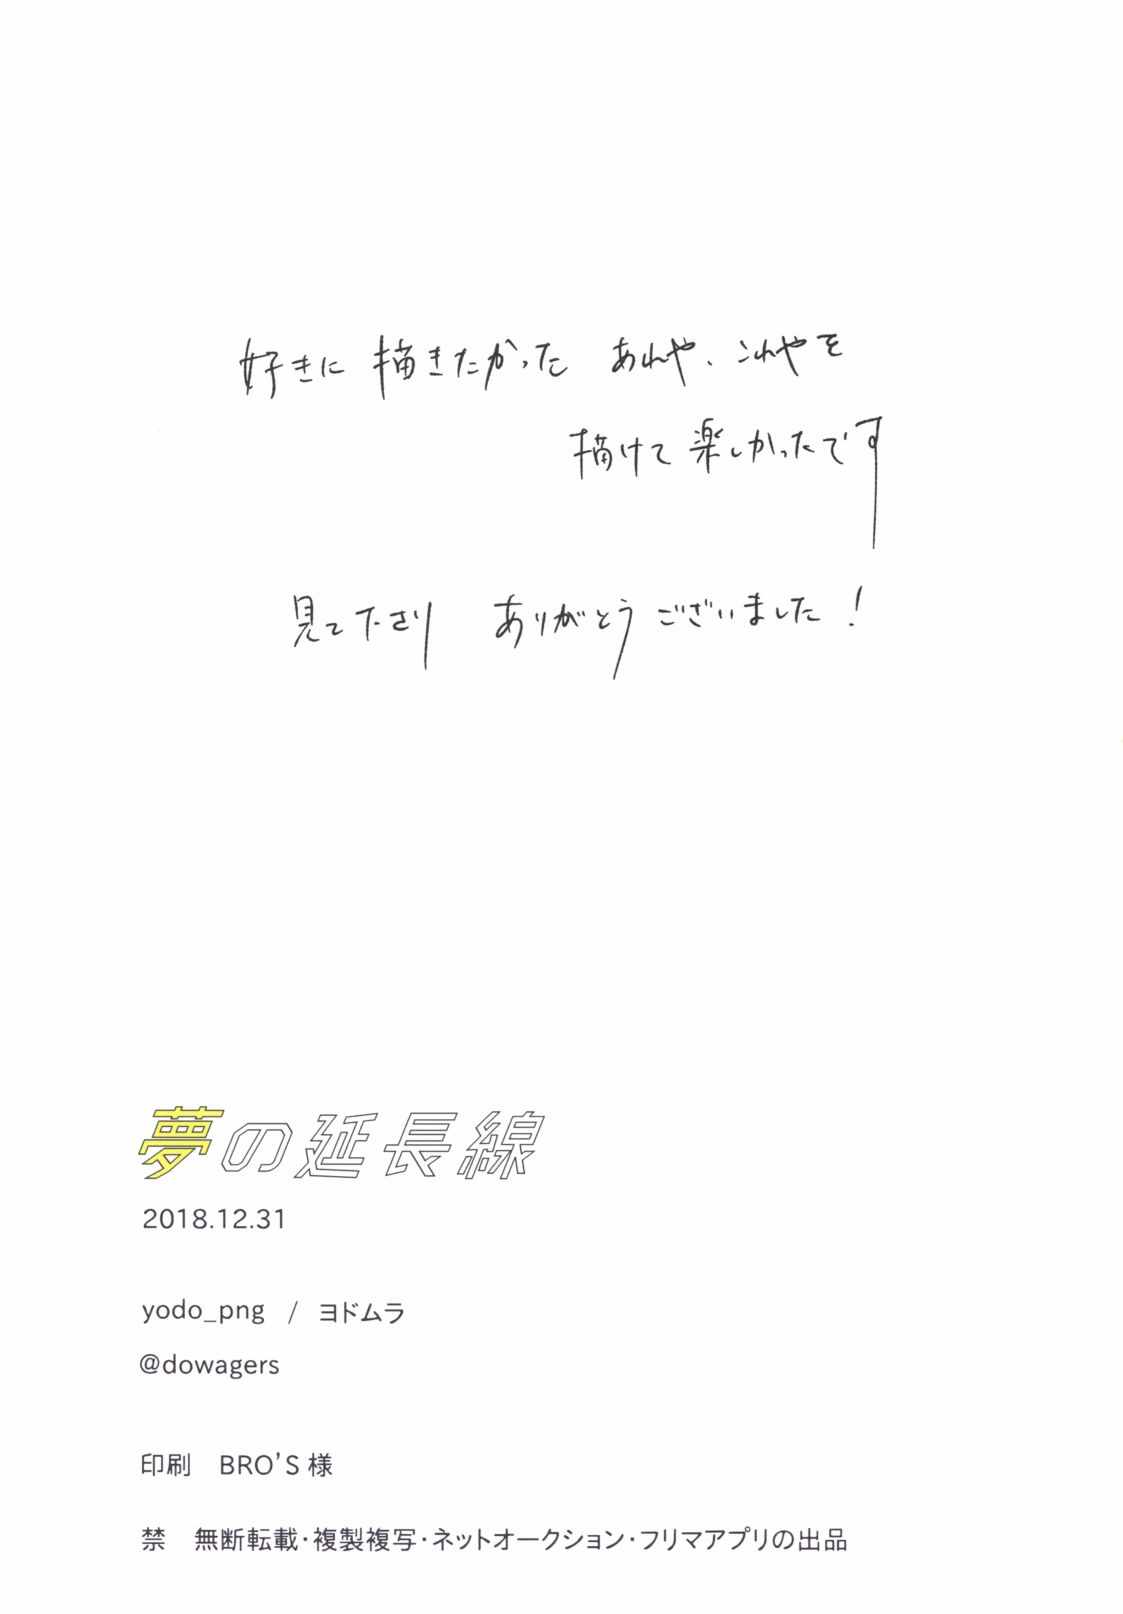 好きに描きたかった あれや、これやを
描けて楽しかったです
見て下さり ありがとうございました！
夢の延長線
2018.12.31
yodo_png / ヨドムラ
@dowagers
印刷 BRO'S 様
禁 無断転載・複製複写・ネットオークション・フリマアプリの出品